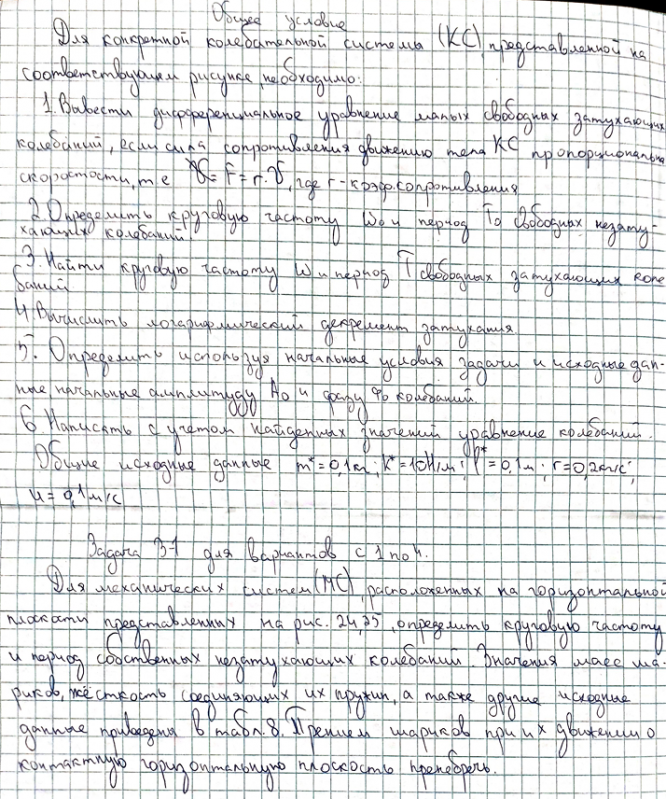 Общее условие
Для конкретной колебательной системы (КС), представленной на
соответствующем рисунке, необходимо:
1. Вывести дифференциальное уравнение малых свободных затухающих
колебаний, если сила сопротивления движению тела КС пропорциональна
скорости, т.е F = r·V, где r - коэф. сопротивления
2 Определить круговую частоту ω₀ и период T₀ свободных незату-
хающих колебаний.
3. Найти круговую частоту ω и период T свободных затухающих коле
баний
4. Вычислить логарифмический декремент затухания
5. Определить используя начальные условия задачи и исходные дан-
ные, начальные амплитуду A₀ и фазу φ₀ колебаний.
6 Написать с учетом найденных значений уравнение колебаний.
Общие исходные данные m*=0,1кг; k*=10Н/м; l*=0,1м; r=0,2кг/с;
u=0,1м/с
Задача 3-1 для вариантов с 1 по 4.
Для механических систем (МС), расположенных на горизонтальной
плоскости представленных на рис. 24,25, определить круговую частоту
и период собственных незатухающих колебаний. Значения масс ша-
риков, жёсткость соединяющих их пружин, а также другие исходные
данные приведены в табл. 8. Трением шариков при их движении о
контактную горизонтальную плоскость пренебречь.